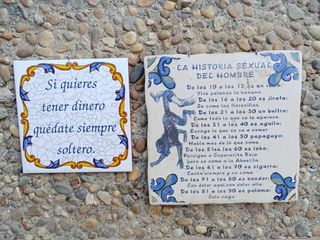 Si quieres
tener dinero
quédate siempre
soltero.
LA HISTORIA SEXUAL
DEL HOMBRE
De los 10 a los 15, es un mono:
Vive pelando la banana
De los 16 a los 20 es jirafa:
Se come las florecillas
De los 21 a los 30 un buitre:
Come todo lo que se le aparece.
De los 31 a los 40 es águila:
Escoge lo que se va a comer
De los 41 a los 50 papagayo:
Habla mas de lo que come
De los 51 a los 60 es lobo:
Persigue a Caperucita Roja
pero se come a la Abuelita
De los 61 a los 70 es cigarra:
Canta siempre y no come
De los 71 a los 80 es condor:
Con dolor aquí, con dolor alla,
De los 81 a los 90 es paloma:
Solo caga